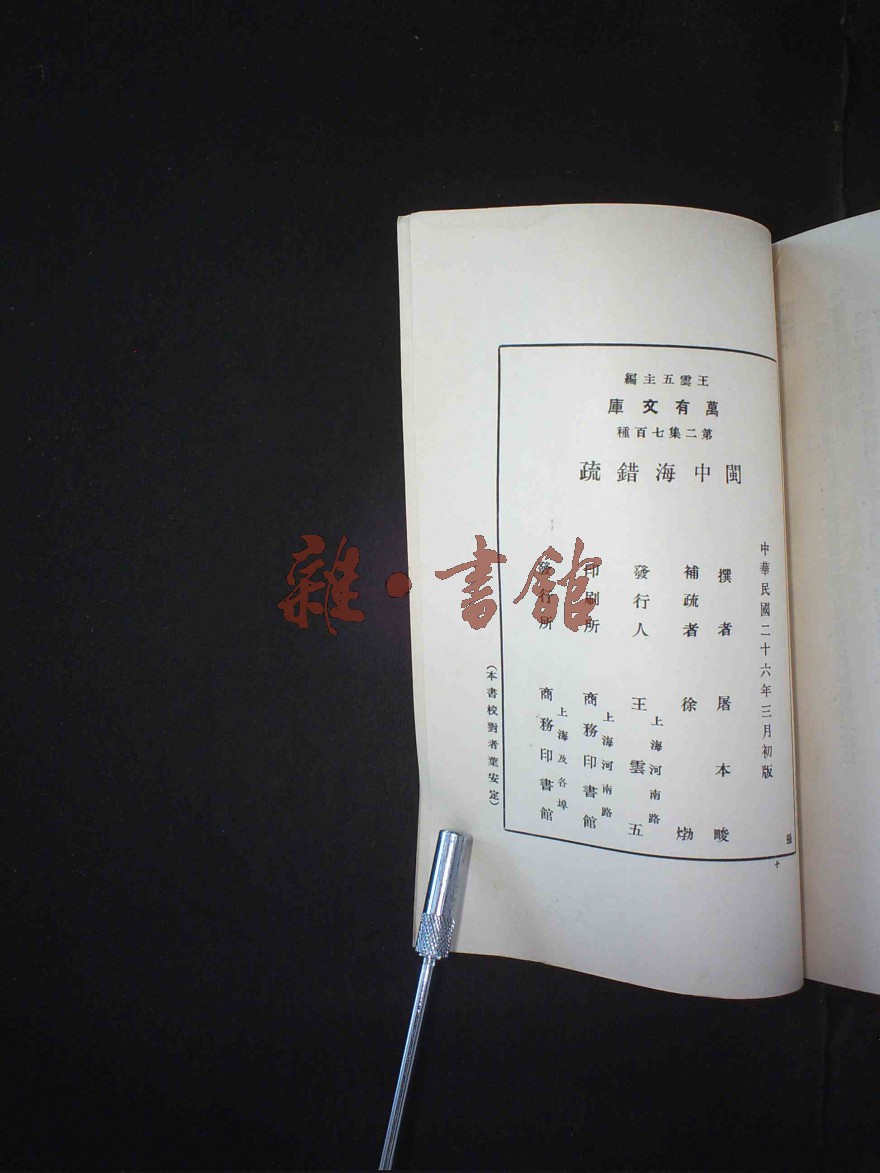 王雲五主編
萬有文庫
第二集七百種
閩中海錯疏
中華民國二十六年三月初版
撰者 屠本畯
補疏者 徐𤊹
發行人 王雲五
上海河南路
印刷所 商務印書館
上海河南路
發行所 商務印書館
上海及各埠
(本書校對者葉安定)
雜·書館